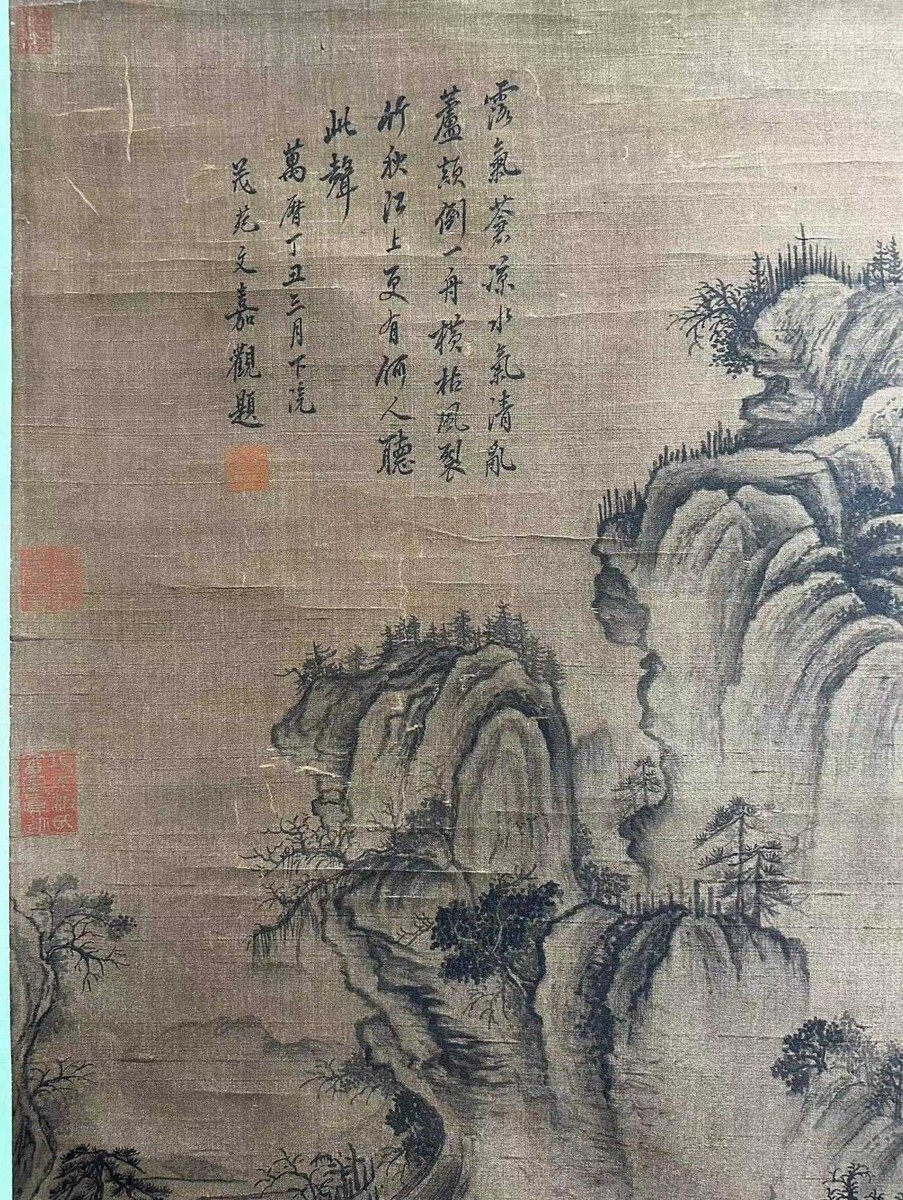 露氣蒼涼水氣清亂
蘆顛倒一舟橫枯風裂
竹秋江上更有何人聽
此聲
萬曆丁丑三月下浣
茂苑文嘉觀題